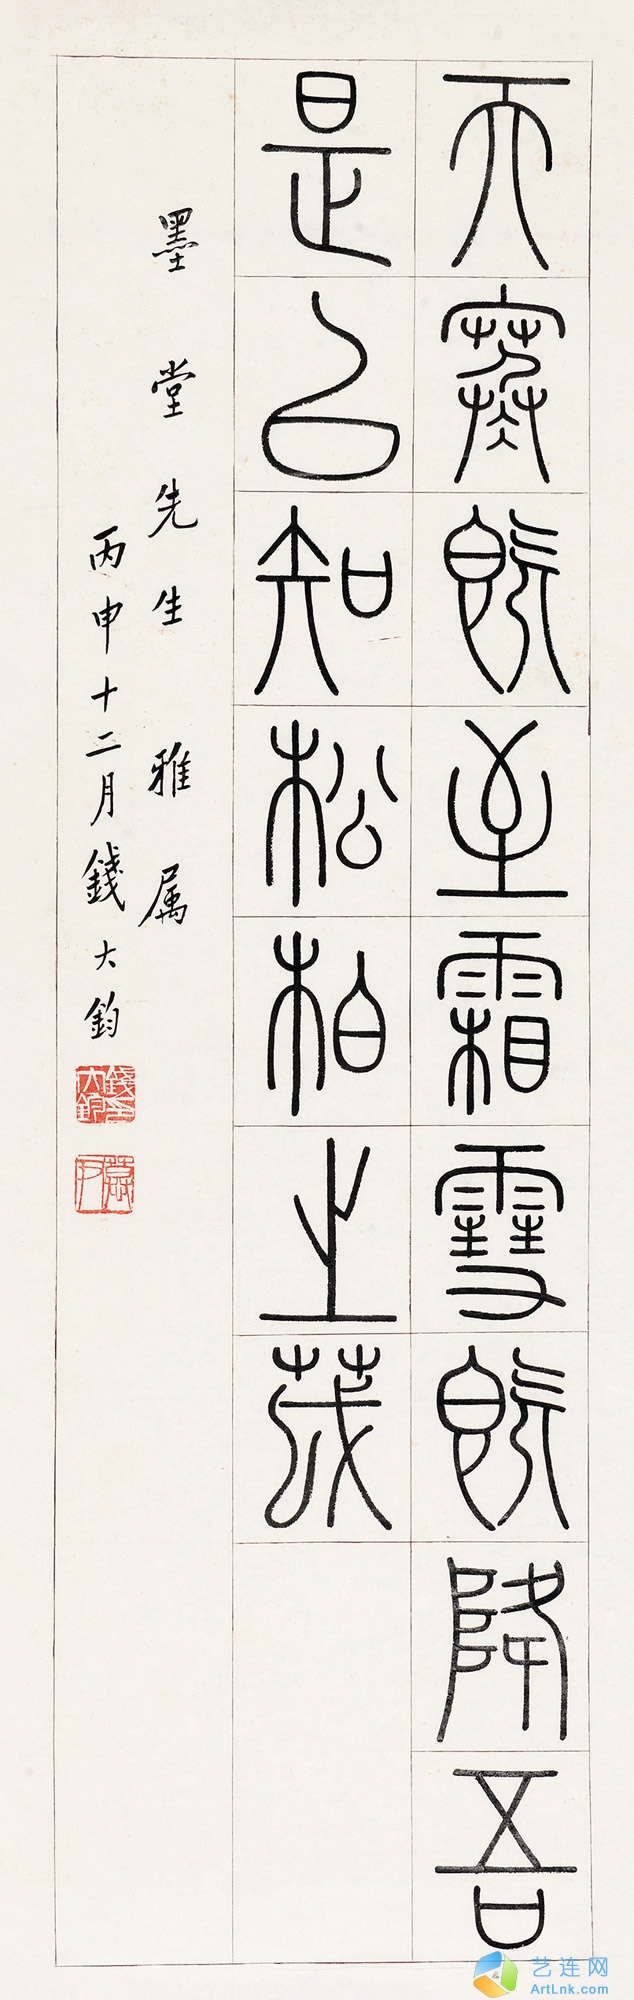 天寒既至霜雪既降吾
是以知松柏之茂
墨堂先生雅属
丙申十二月錢大鈞
錢大鈞印
慕尹
艺连网
ArtLnk.com